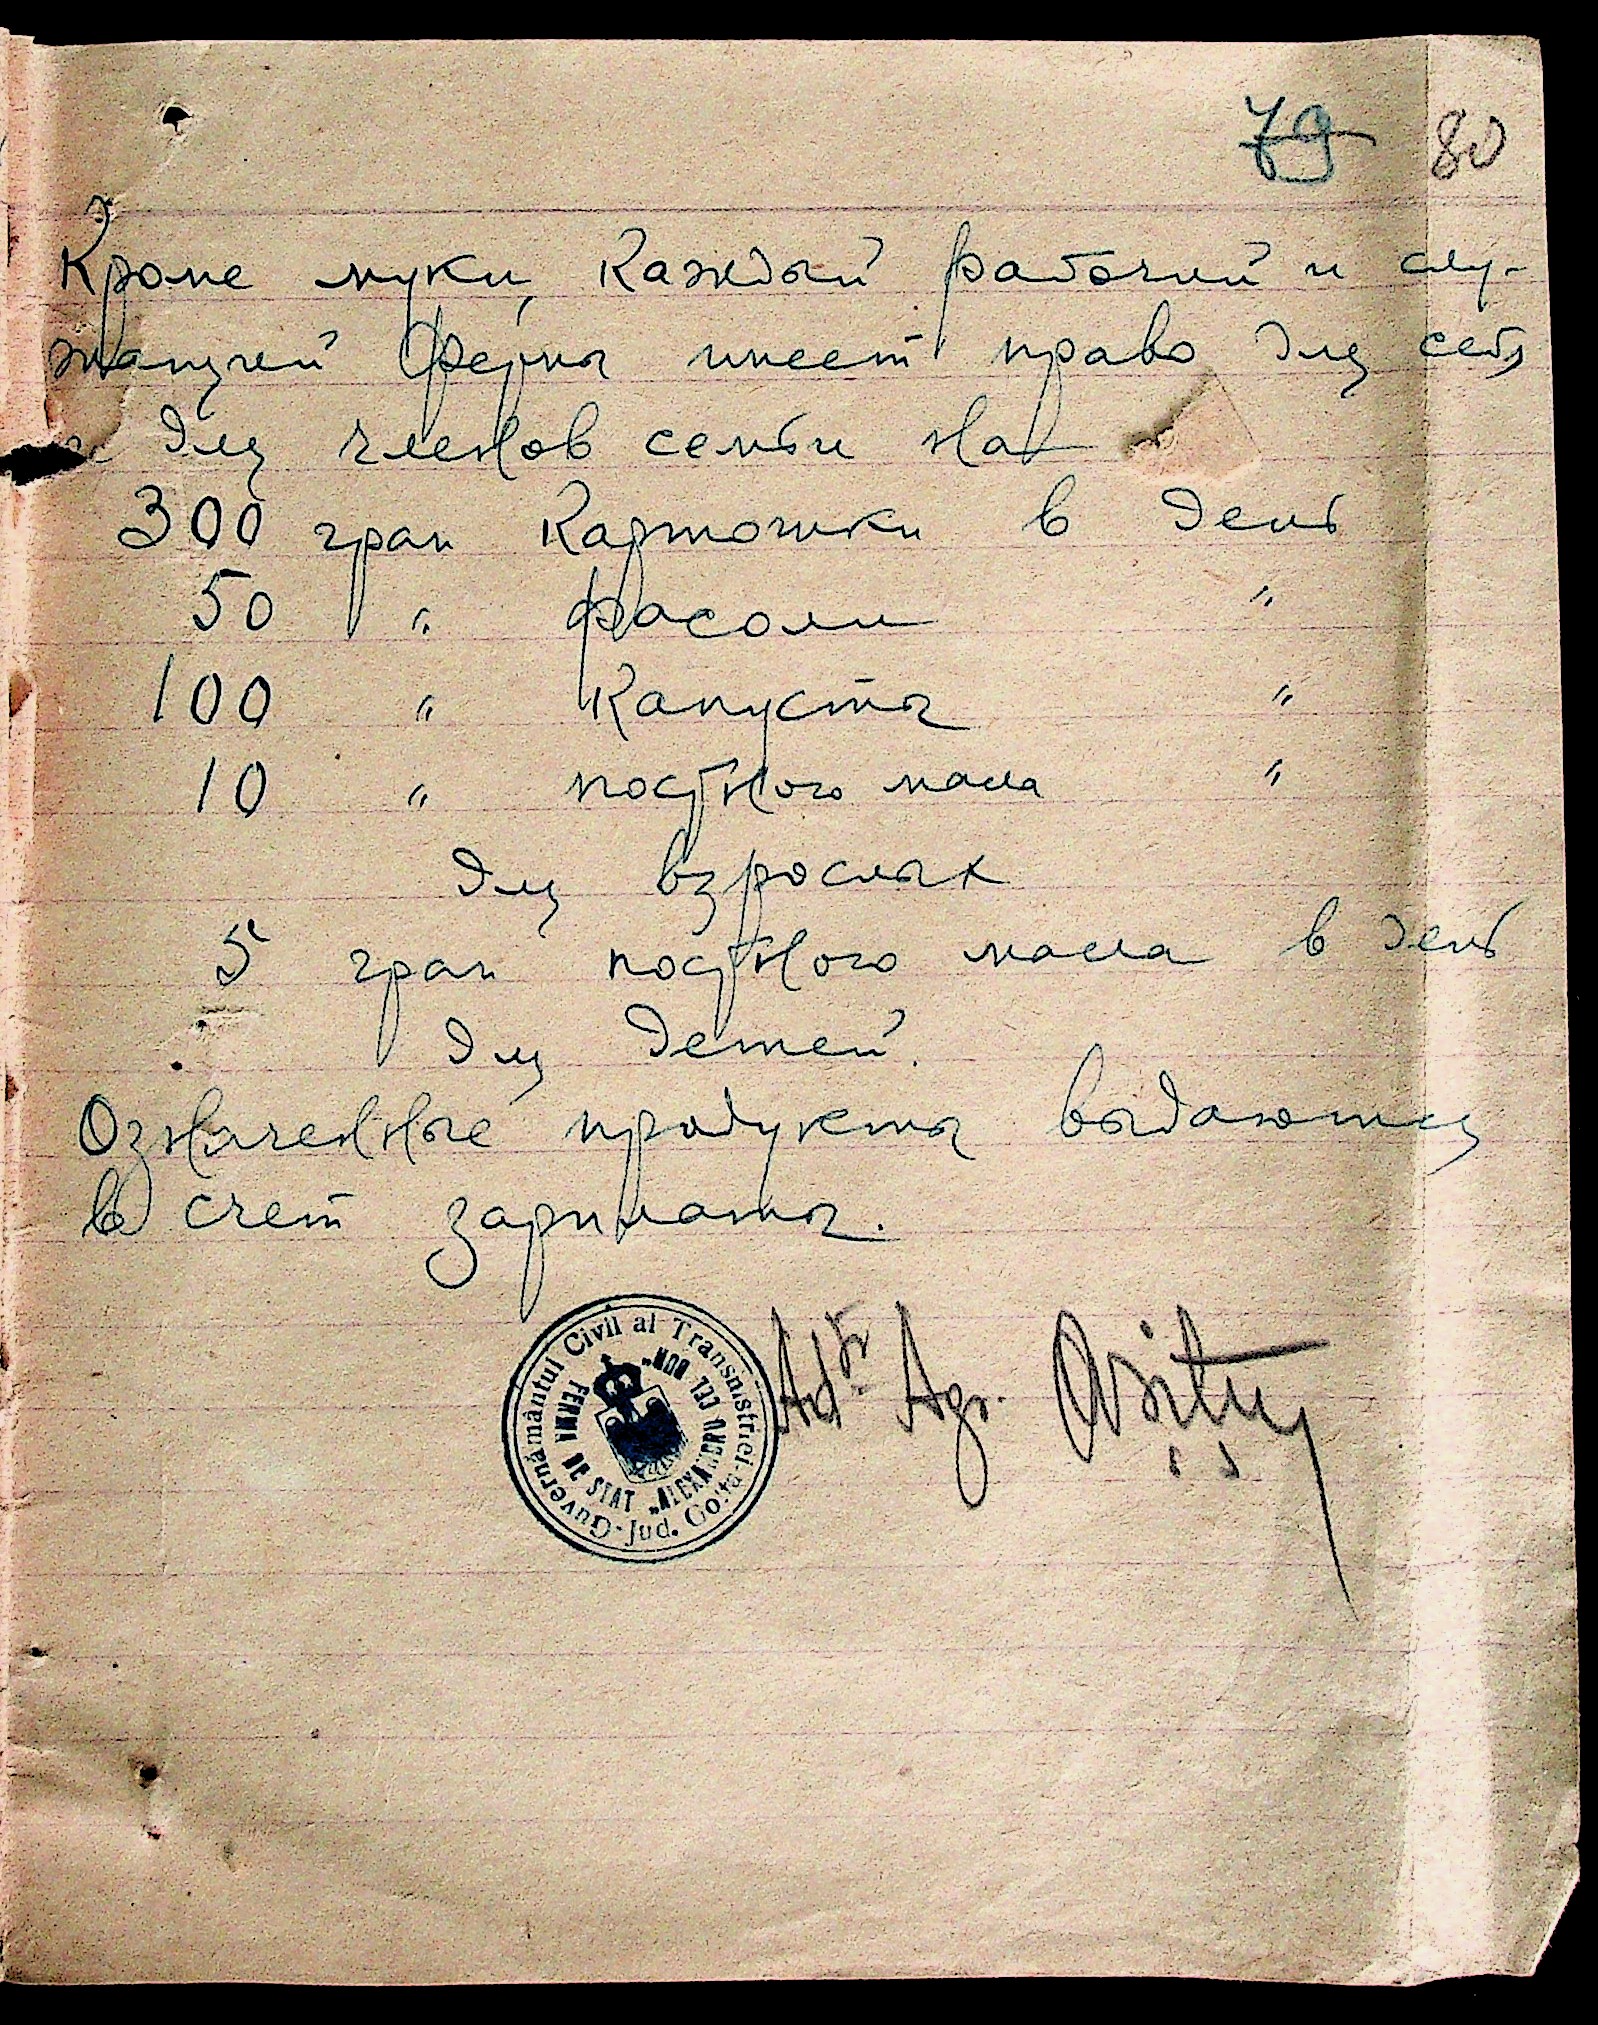 79 80
Кроме муки, каждый рабочий и слу-
жащий фермы имеет право для себя
и для членов семьи на
300 грам картошки в день
50 " фасоли "
100 " капусты "
10 " постного масла "
для взрослых
5 грам постного масла в день
для детей.
Означенные продукты выдаются
в счет зарплаты.
Guvernământul Civil al Transnistriei
Jud. Golta
FERMA DE STAT „ALEXANDRU CEL BUN"
Adtr Agr.